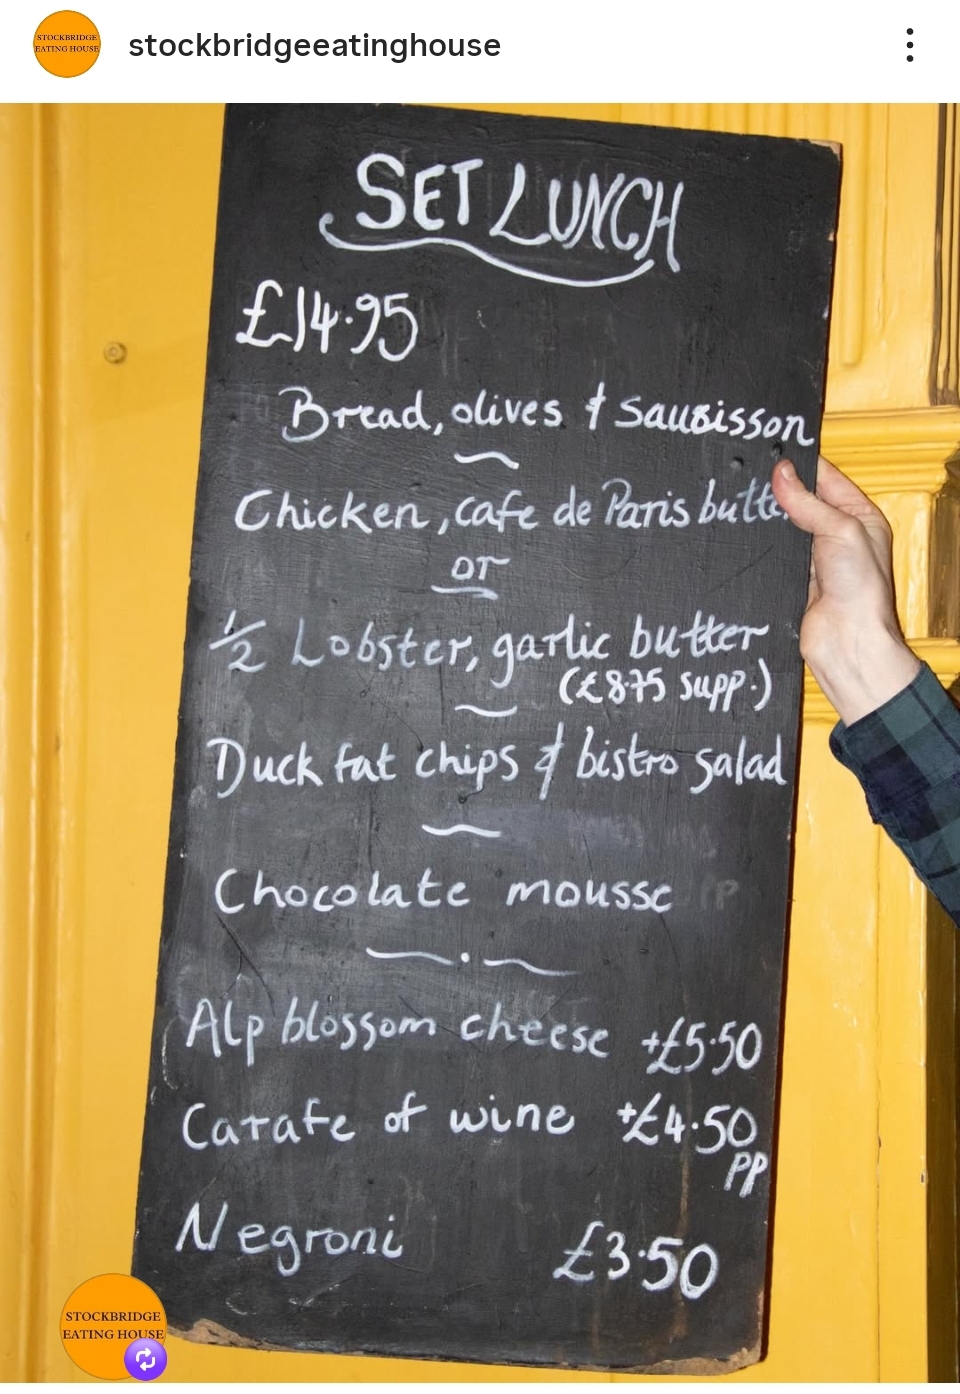 STOCKBRIDGE
EATING HOUSE
stockbridgeeatinghouse
SET LUNCH
£14.95
Bread, olives & Saucisson
Chicken, cafe de Paris
or
1/2 Lobster, garlic butter
(£8.75 supp.)
Duck fat chips & bistro salad
Chocolate mousse
Alp blossom cheese +£5.50
Carafe of wine +£4.50
PP
Negroni £3.50
STOCKBRIDGE
EATING HOUSE